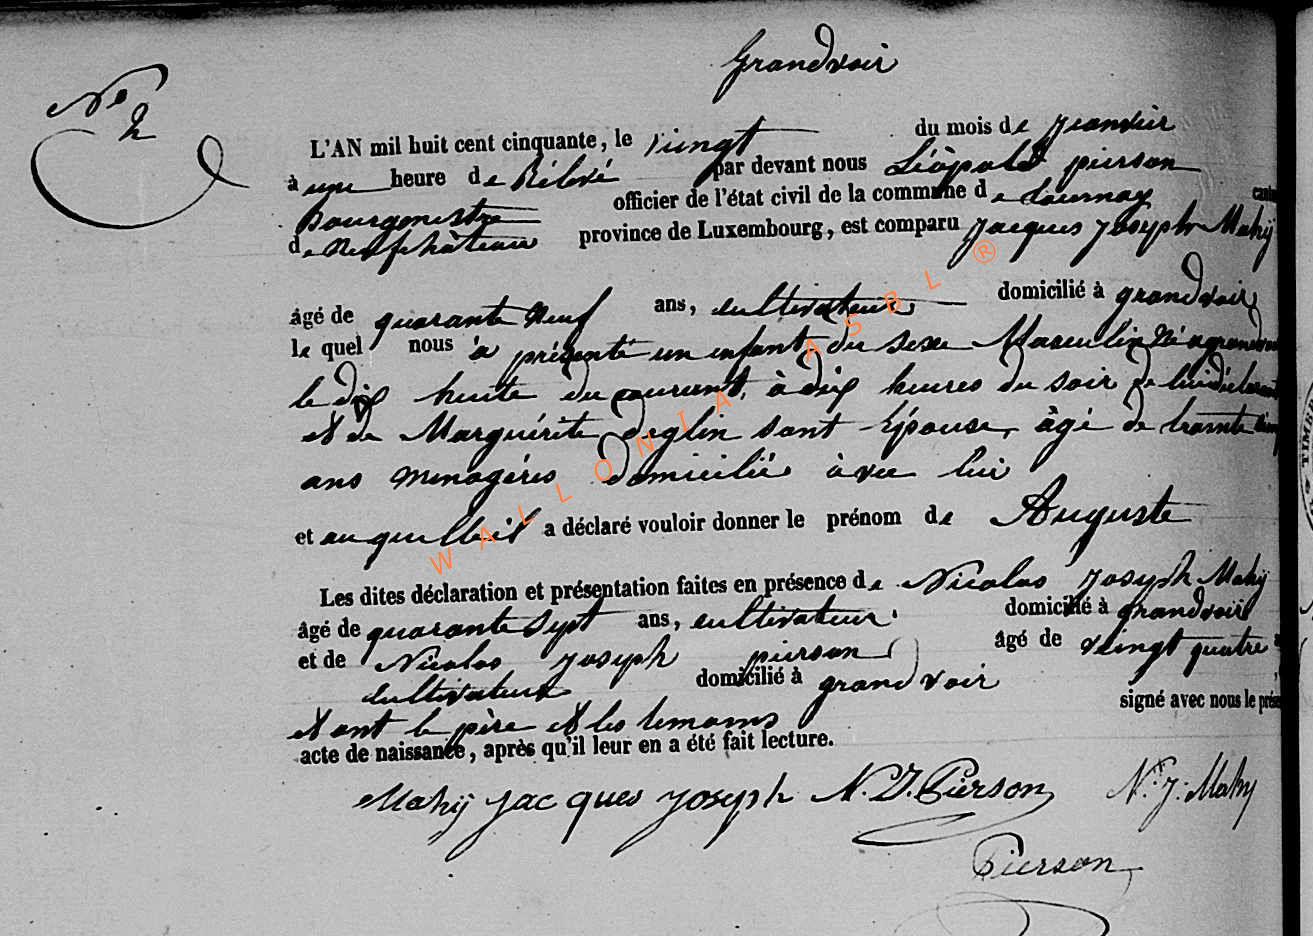 Grandvoir
No
2
L'AN mil huit cent cinquante, le vingt du mois de Jeanvier
à une heure de Rélevé par devant nous Léopold pierson
Bourgmestre officier de l'état civil de la commune de tournay
de Neufchâteau province de Luxembourg, est comparu Jacques Joseph Mahÿ
âgé de quarante neuf ans, cultivateur domicilié à grandvoir
le quel nous à présenté un enfant du sexe Masculin Né a
le dix huite du courant, à dix heures du soir de lui
et de Marguérite deglin sont Epouse, âgé de trainte
ans menagéres domiciliée àvec lui
et auquelle il a déclaré vouloir donner le prénom de Auguste
Les dites déclaration et présentation faites en présence de Nicolas Joseph Mahÿ
âgé de quarante sept ans, cultivateur domicilié à grandvoir
et de Nicolas Joseph pierson âgé de veingt quatre
cultivateur domicilié à grandvoir
et ont le père et les temoins signé avec nous le prése
acte de naissance, après qu'il leur en a été fait lecture.
Mahÿ Jacques Joseph N. J. Pierson N. J. Mahy
Pierson
WALLONIA ASBL ®